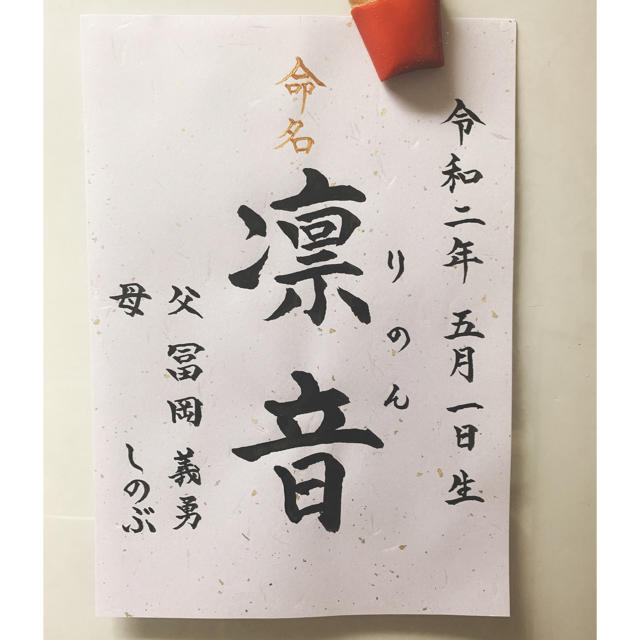 令和二年 五月一日生
りのん
命名
凛音
父 冨岡 義勇
母 しのぶ